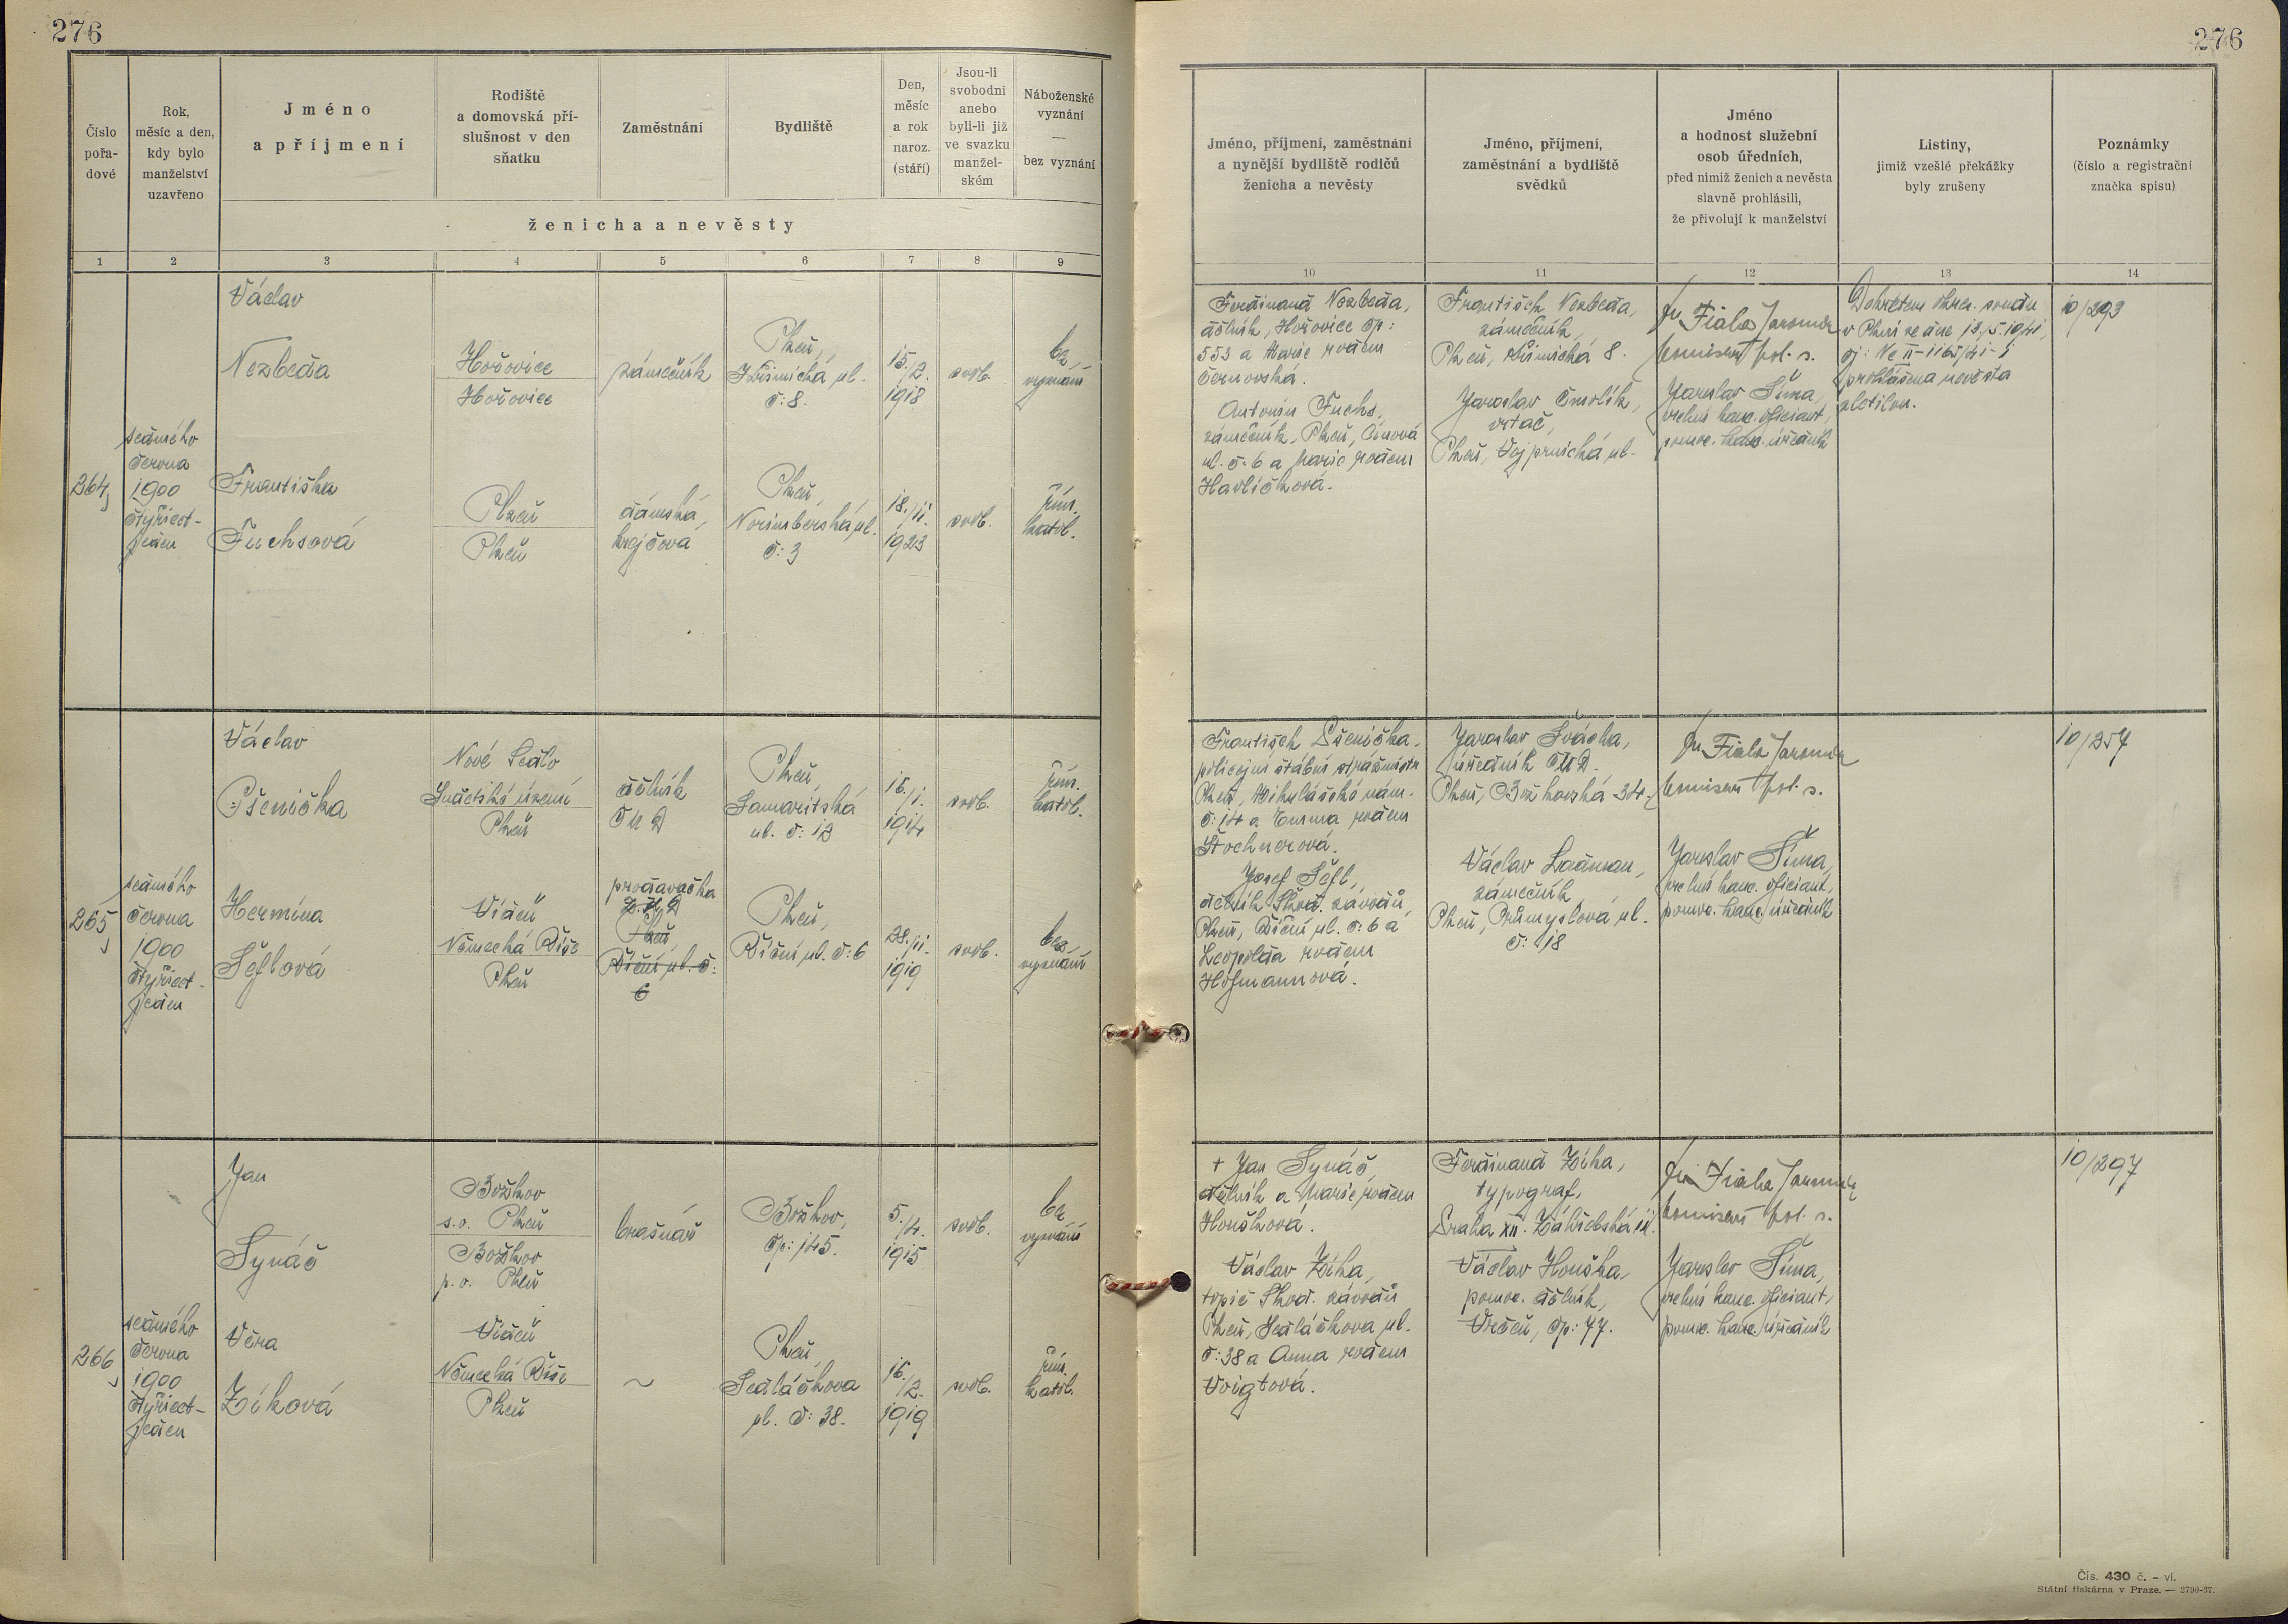 276
276
Číslo
pořa-
dové
Rok,
měsíc a den,
kdy bylo
manželství
uzavřeno
Jméno
a příjmení
Rodiště
a domovská pří-
slušnost v den
sňatku
Zaměstnání
Bydliště
Den,
měsíc
a rok
naroz.
(stáří)
Jsou-li
svobodni
anebo
byli-li již
ve svazku
manžel-
ském
Náboženské
vyznání
—
bez vyznání
ženicha a nevěsty
Jméno, příjmení, zaměstnání
a nynější bydliště rodičů
ženicha a nevěsty
Jméno, příjmení,
zaměstnání a bydliště
svědků
Jméno
a hodnost služební
osob úředních,
před nimiž ženich a nevěsta
slavně prohlásili,
že přivolují k manželství
Listiny,
jimiž vzešlé překážky
byly zrušeny
Poznámky
(číslo a registrační
značka spisu)
1 2 3 4 5 6 7 8 9
10 11 12 13 14
264,
sedmého
června
1900
čtyřicet-
jeden
Václav
Nezbeda
Hořovice
Hořovice
zámečník
Plzeň,
ul.
č: 8.
15./2.
1918
svob.
bez
vyznání
Františka
Fuchsová
Plzeň
Plzeň
dámská
krejčová
Plzeň,
Norimberská ul.
č: 3
18./11.
1923
svob.
řím.
katol.
Ferdinand Nezbeda,
dělník, Hořovice čp:
553 a Marie rozem
Černovská.
Antonín Fuchs,
zámečník, Plzeň,
ul. č. 6 a Marie rozem
Havlíčková.
František Nezbeda,
zámečník,
Plzeň, 8.
Jaroslav Čmolík,
vrtač,
Plzeň, Vejprnická ul.
Dr Fiala Jaromír
komisař pol. s.
Jaroslav Šíma,
vrchní kanc. oficiant,
pomoc. kanc. úředník
Dekretem okres. soudu
v Plzni ze dne 13./5.1941,
čj: Nc II-1165/41-1
prohlášena nevěsta
zletilou.
10/293
265,
sedmého
června
1900
čtyřicet-
jeden
Václav
Pšenička
Nové Sedlo
Sudetské území
Plzeň
dělník
ČMD
Plzeň,
Samaritská
ul. č: 12
16./1.
1914
svob.
řím.
katol.
Hermína
Šeflová
Vídeň
Německá Říše
Plzeň
prodavačka
Plzeň,
Říční ul. č:
6
Plzeň,
Říční ul. č: 6
28./11.
1919
svob.
bez
vyznání
František Pšenička,
policejní štábní strážmistr
Plzeň, Mikulášské nám.
č: 14 a Emma rozem
Štochnerová.
Josef Šefl,
dělník Škod. závodů,
Plzeň, Říční ul. č: 6 a
Leopolda rozem
Hofmannová.
Jaroslav Švácha,
úředník ČMD.
Plzeň, Božkovská 34.
Václav Ladman,
zámečník
Plzeň, Průmyslová ul.
č: 18
Dr Fiala Jaromír
komisař pol. s.
Jaroslav Šíma,
vrchní kanc. oficiant,
pomoc. kanc. úředník
10/257
266,
sedmého
června
1900
čtyřicet-
jeden
Jan
Synáč
Božkov
s.o. Plzeň
Božkov
p.o. Plzeň
brašnář
Božkov,
čp: 145.
5./4.
1915
svob.
bez
vyznání
Věra
Zíková
Vídeň
Německá Říše
Plzeň
~
Plzeň,
Sedláčkova
ul. č: 38.
16./2.
1919
svob.
řím.
katol.
+ Jan Synáč,
dělník a Marie rozem
Houšková.
Václav Zíka,
topič Škod. závodů
Plzeň, Sedláčkova ul.
č: 38 a Anna rozem
Voigtová.
Ferdinand Zíka,
typograf,
Praha XII. Záhřebská
Václav Houška,
pomoc. dělník,
Vrčeň, čp: 77.
Dr Fiala Jaromír
komisař pol. s.
Jaroslav Šíma,
vrchní kanc. oficiant,
pomoc. kanc. úředník
10/297
Čís. 430 č. – vi.
Státní tiskárna v Praze. — 2790-37.